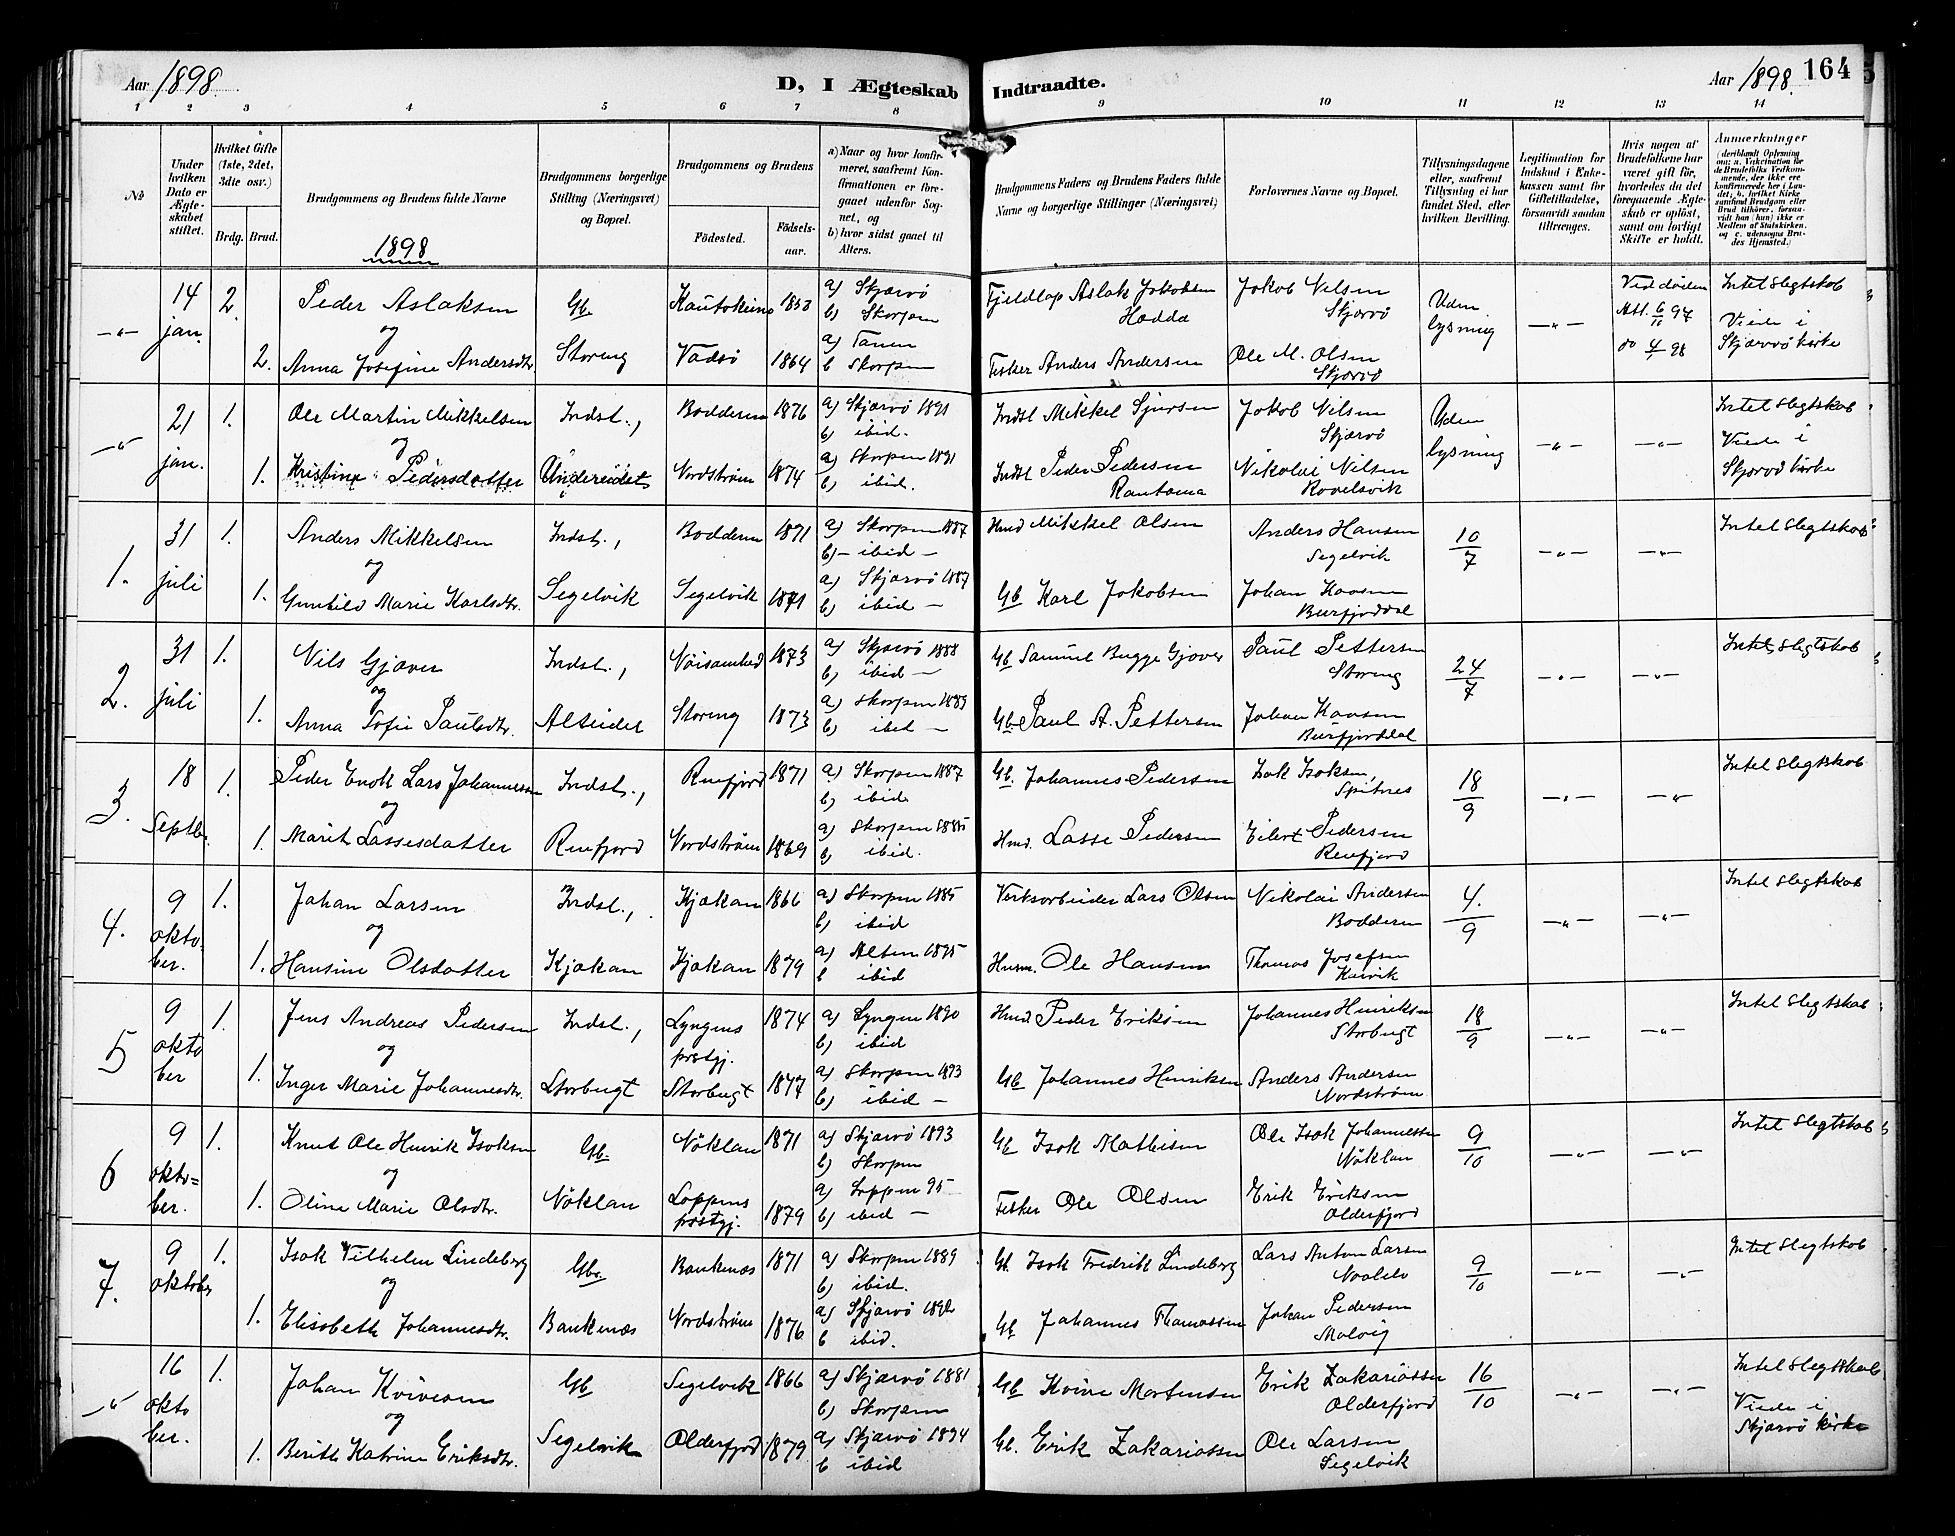 Aar 1898. D, I Ægteskab Indtraadte. Aar 1898. 164
1 2 3 4 5 6 7 8 9 10 11 12 13 14
No
Under hvilken Dato er Ægteskabet stiftet.
Hvilket Gifte (1ste, 2det, 3die osv.)
Brdg. Brud.
Brudgommens og Brudens fulde Navne
1898
Brudgommens borgerlige Stilling (Næringsvei) og Bopæl.
Brudgommens og Brudens
Födested. Födselsaar.
a) Naar og hvor konfirmeret, saafremt Konfirmationen er foregaaet udenfor Sognet, og
b) hvor sidst gaaet til Alters.
Brudgommens Faders og Brudens Faders fulde Navne og borgerlige Stillinger (Næringsvei)
Forlovernes Navne og Bopæl.
Tillysningsdagene eller, saafremt Tillysning ei har fundet Sted, efter hvilken Bevilling.
Legitimation for Indskud i Enkekassen samt for Giftetilladelse, forsaavidt saadan tiltrænges.
Hvis nogen af Brudefolkene har været gift før, hvorledes da det foregaaende Ægteskab er opløst, samt om lovligt Skifte er holdt.
Anmerkninger
(deriblandt Oplysning om: a. Vakcination for de Brudefolks Vedkommende, der ikke ere konfirmerede her i Landet; b. hvilket Kirkesamfund Brudgom eller Brud tilhörer, forsaavidt han (hun) ikke er Medlem af Statskirken, og c. udensogns Brudes Hjemsted.)
-"- 14 jan. 2. Peder Aslaksen Gb. Kautokeino 1853 a) Skjærvö b) Skorpen Fjeldlap Aslak Jokobsen Hædda Jokob Nilsen Skjærvö Uden lysning -"- Ved döden Att. 6/11 97 Intet Slegtskab
og
2. Anna Josefine Andersdtr. Storeng Vadsö 1864 a) Tanen b Skorpen Fisker Anders Andersen Ole M. Olsen Skjærvö do 4/1 98 Viede i Skjærvö kirke
-"- 21 jan. 1. Ole Martin Mikkelsen Indst., Bodderen 1876 a) Skjærvö 1891 b) ibid. Indst Mikkel Sjursen Jokob Nilsen Skjærvö Uden lysning -"- -"- Intet Slegtskab
og
1. Kristine Pedersdatter Undereidet Nordström 1874 a) Skorpen 1891 b) ibid. Indst Peder Pedersen Rautama Nikolai Nilsen Viede i Skjærvö kirke
1. 31 juli 1. Anders Mikkelsen Indst., Bodderen 1871 a) Skorpen 1887 b) - ibid - Hmd Mikkel Olsen Anders Hansen Segelvik 10/7 -"- -"- Intet Slegtskab
og
1. Gunhild Marie Karlsdtr. Segelvik Segelvik 1871 a) Skjærvö 1887 b) ibid - Gb Karl Jokobsen Johan Kaasen Burfjorddal
2. 31 juli 1. Nils Gjæver Indst., Nöisomhed 1873 a) Skjærvö 1888 b) ibid - Gb Samuel Bugge Gjæver Paul Pettersen Storeng 24/7 -"- -"- Intet Slegtskab
og
1. Anna Sofie Paulsdtr. Alteidet Storeng 1873 a) Skorpen 1889 b) ibid - Gb. Paul A. Pettersen Johan Kaasen Burfjorddal
3. 18 Septbr. 1. Peder Enok Lars Johannessen Indst., Reinfjord 1871 a) Skorpen 1887 b) ibid Gb. Johannes Pedersen Isak Isaksen, Spitnes 18/9 -"- -"- Intet Slegtskab
og
1. Marit Lassesdatter Reinfjord Nordström 1869 a) Skorpen 1885 b) ibid. Hmd. Lasse Pedersen Eilert Pedersen Reinfjord
4. 9 oktober. 1. Johan Larsen Indst., Kjækan 1866 a) Skorpen 1885 b) ibid Verksarbeider Lars Olsen Nikolai Andersen Bodderen 4./9 -"- -"- Intet Slegtskab
og
1. Hansine Olsdatter Kjækan Kjækan 1879 a) Alten 1895 b ibid Husm. Ole Hansen Thomas Josefsen
5 9 oktober 1. Jens Andreas Pedersen Indst., Lyngens prstgj. 1874 a) Lyngen 1890 b) ibid Hmd. Peder Eriksen Johannes Henriksen Storbugt 18/9 -"- -"- Intet Slegtskab
og
1. Inger Marie Johannesdtr. Storbugt Storbugt 1877 a) Skorpen 1893 b) ibid - Gb Johannes Henriksen Anders Andersen Nordström
6 9 oktober. 1. Knut Ole Henrik Isaksen Gb. Nöklan 1871 a) Skjærvö 1893 b) Skorpen Gb Isak Mathisen Ole Isak Johannessen Nöklan 9/10 -"- -"- Intet Slegtskab
og
1. Oline Marie Olsdtr. Nöklan Loppens prstgj. 1879 a) Loppen 95 b) ibid - Fisker Ole Olsen Erik Eriksen Olderfjord
7. 9 oktober 1. Isak Vilhelm Lindeberg Gb. Bankenæs 1871 a) Skorpen 1889 b) ibid. Gb. Isak Fredrik Lindeberg Lars Anton Larsen 9/10 -"- -"- Intet Slegtskab
og
1. Elisabeth Johannesdtr. Bankenæs Nordström 1876 a) Skjærvö b ibid. Gb Johannes Thomassen Johan Pedersen
-"- 16 oktober. 1. Johan Kvivesen Gb Segelvik 1866 a) Skjærvö 1881 b) Skorpen Gb Kvive Mortensen Erik Zakariassen Olderfjord 16/10 -"- -"- Intet Slegtskab
og
1. Berith Katrine Eriksdtr. Segelvik Olderfjord 1879 a) Skjærvö 1894 b ibid Gb. Erik Zakariassen Ole Larsen Segelvik Viede i Skjærvö kirke